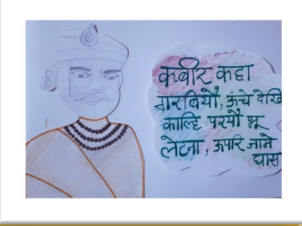 कबीर कहा
गरबियौ, ऊंचे देखि
काल्हि परयौ भू
लेटना, ऊपरि जामे
घास